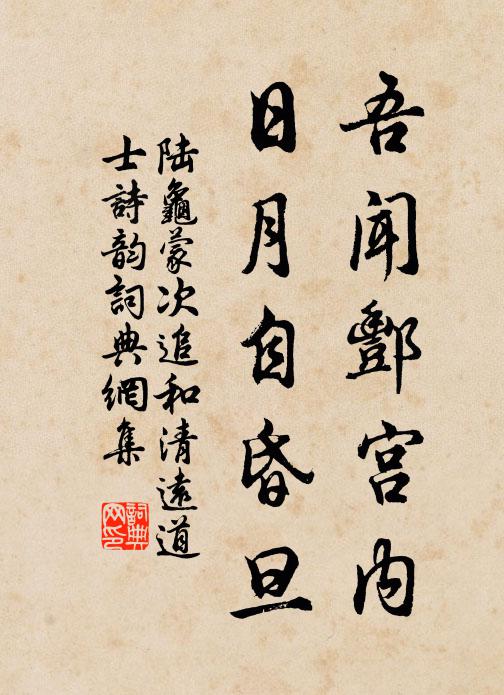 吾闻酆宫内
日月自昏旦
陆龜蒙次追和清遠道
士詩韵詞典網集
詞典
网印